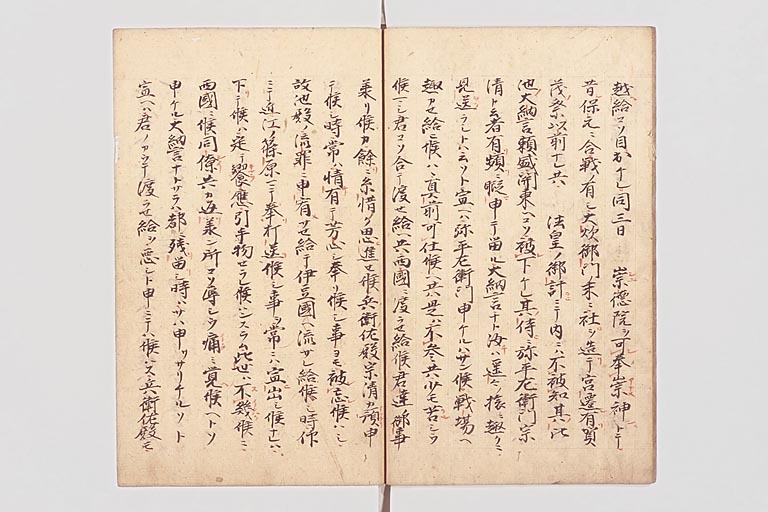 越給コソ目出ケレ同三日 崇徳院ヲ可奉崇神トテ
昔保元ニ合戦ノ有シ大炊御門末ニ社ヲ造テ宮遷有賀
茂祭以前ナレ共 法皇ノ御計ニテ内ニハ不被知其比
池大納言頼盛関東ヘコソ被下ケレ其侍ニ弥平左衛門宗
清ト云者有頻ニ暇申テ留ル大納言ナト汝ハ遥々ノ旅ニ趣クニ
見送ラシトハ云ソト宣ヘハ弥平左衛門申ケルハサン候戦場ヘ
趣カセ給候ハヽ真前可仕候ヘ共是ハ不参共少モ苦シウ
候ハシ君コソ合テ渡セ給ヘ共西國ニ渡ラセ給候君達御事
乗リ候カ餘ニ糸惜ク思進セ候兵衛佐殿宗清カ預申
テ候シ時常ハ情有テ芳心シ奉リ候シ事ヨモ被忘候ハシ
故池殿ノ流罪ニ申宥サセ給テ伊豆國ヘ流サレ給候シ時仰
ニテ近江ノ篠原マテ奉打送候シ事ヲ常ニハ宣出シ候ナレハ
下テ候ハヽ定テ饗應引手物セラレ候ハンスラム此世ハ不幾候ニ
西國ニ候同僚共カ返義ン所コソ辱シウ痛ミ覚候ヘトソ
申ケル大納言ナトサラハ都ニ残留シ時ハサハ申ツサリケルソト
宣ヘハ君ノカクテ渡ラセ給ヲ悪シト申ニテハ候ハス兵衛佐殿モ